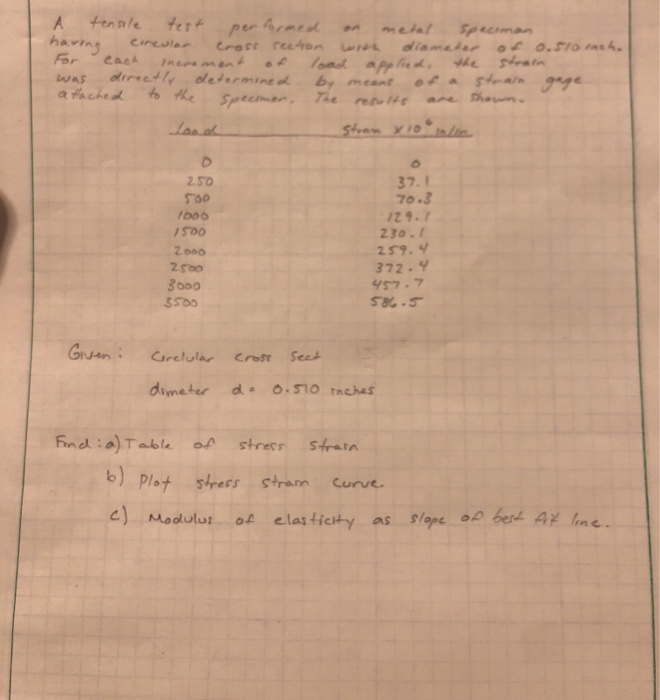 A tensile test performed on metal speciman
having circular cross section with diameter of 0.510 inch.
For each increment of load applied, the strain
was directly determined by means of a strain gage
attached to the specimen. The results are shown.
Load Strain x10⁶ in/in
0 0
250 37.1
500 70.3
1000 129.1
1500 230.1
2000 259.4
2500 372.4
3000 457.7
3500 586.5
Given: Circlular cross sect
dimeter d = 0.510 inches
Find: a) Table of stress strain
b) Plot stress strain curve.
c) Modulus of elasticity as slope of best fit line.